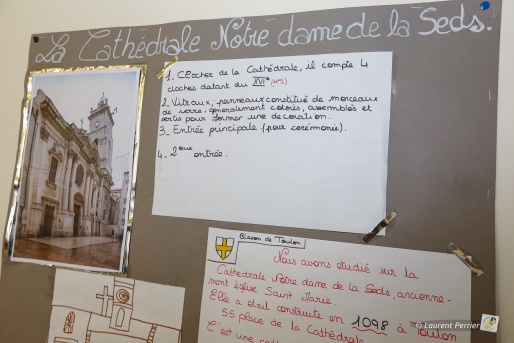 La Cathédrale Notre dame de la Seds.
1. Clocher de la Cathédrale, il compte 4
cloches datant du XVIe
2. Vitraux, panneaux constitué de morceaux
de verre, generalement colorés, assemblés et
sertis pour former une decoration.
3_ Entrée principale (pour cérémonie).
4_ 2eme entrée.
Blason de Toulon
Nous avons étudié sur la
Cathédrale Notre dame de la Seds, ancienne-
ment église Sainte Marie.
Elle a était construite en 1098 à Toulon
55 place de la Cathédrale.
C'est une
© Laurent Perrier